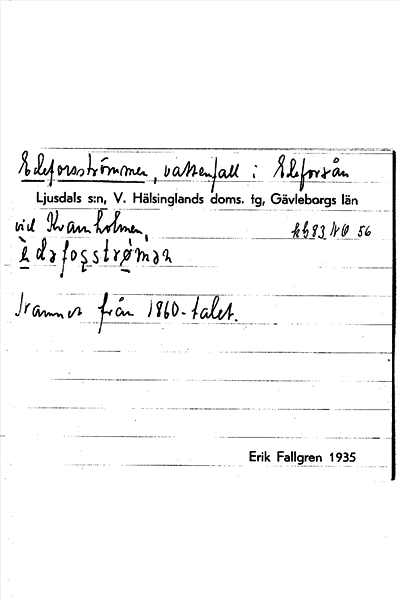 Edeforsströmmen, vattenfall i Edeforsån
Ljusdals s:n, V. Hälsinglands doms. tg, Gävleborgs län
vid Kvarnholmen. kb 83 NV 56
èdəfoʂstrømən
Namnet från 1860-talet.
Erik Fallgren 1935